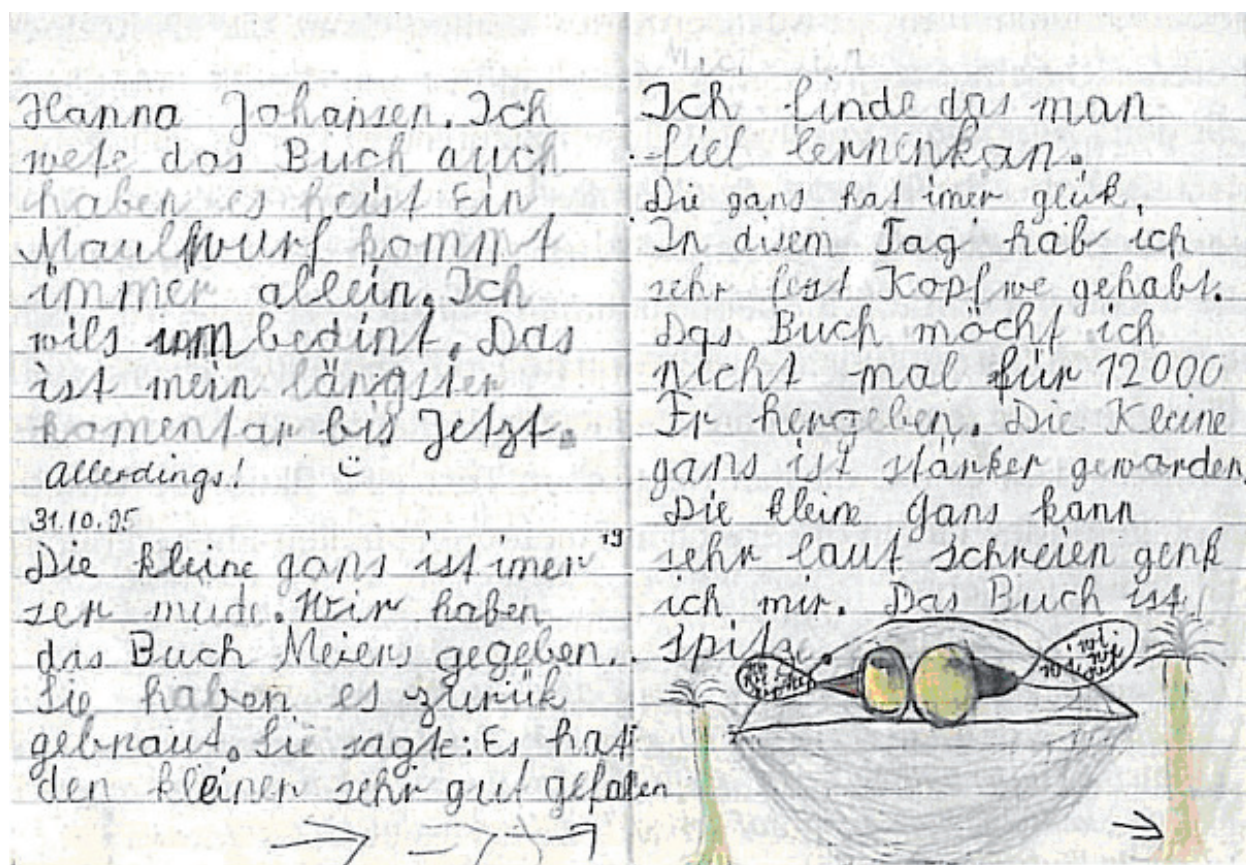 Hanna Johansen. Ich
wete das Buch auch
haben es heist Ein
Maulwurf kommt
immer allein. Ich
wils unbedint. Das
ist mein längster
komentar bis Jetzt.
Allerdings!
31.10.95
Die kleine gans ist imer
ser müde. Wir haben
das Buch Meiers gegeben.
Sie haben es zurük
gebraut. Sie sagte: Es hatt
den kleiner sehr gut gefallen
Ich finde das man
fiel lernenkan.
Die gans hat imer glük.
In disem Tag hab ich
sehr fest Kopfwe gehabt.
Das Buch möcht ich
nicht mal für 12000
Fr hergeben. Die Kleine
gans ist stärker gewarden
Die kleine Gans kann
sehr laut schreien genk
ich mir. Das Buch ist
spitze.